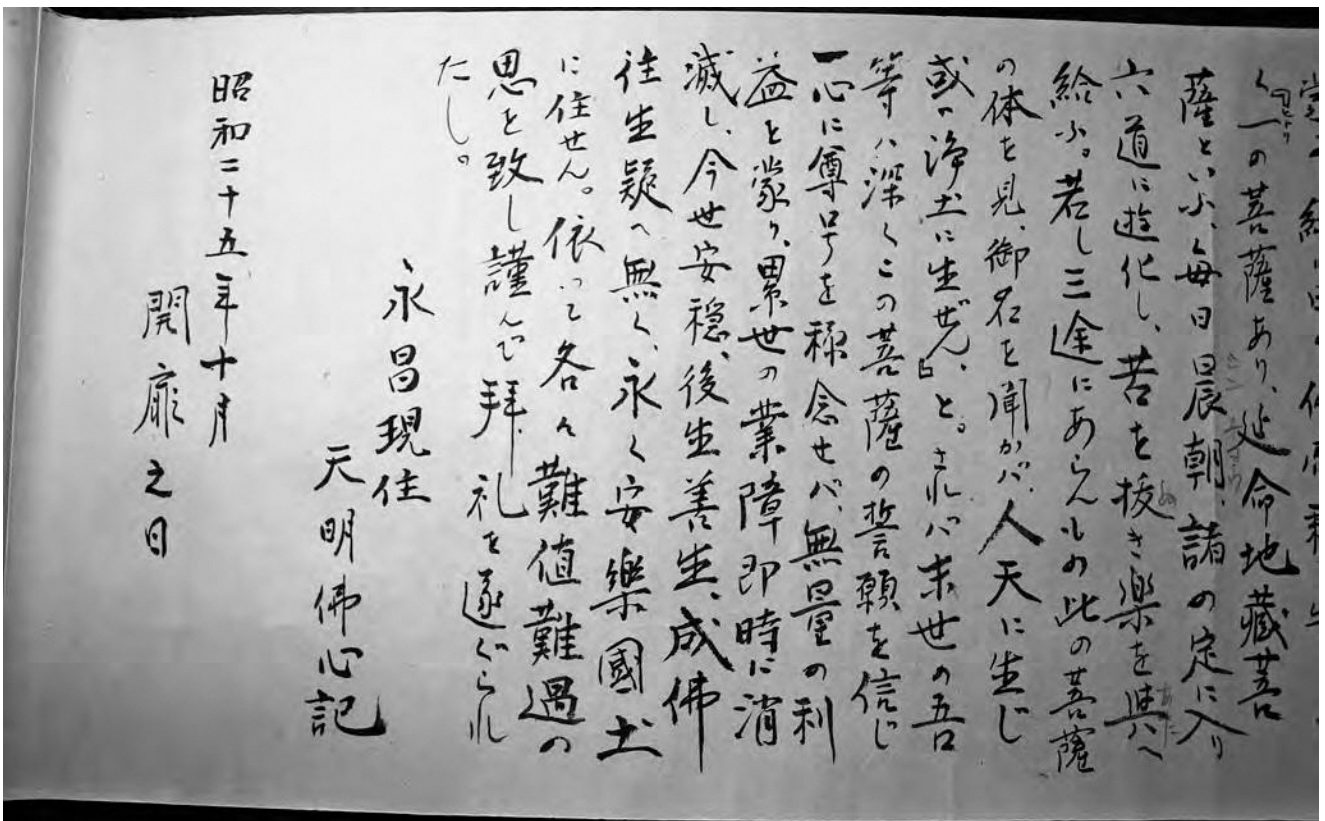 く一の菩薩あり、延命地藏菩
薩といふ、毎日晨朝、諸の定に入り
六道に遊化し、苦を抜き楽を與へ
給ふ。若し三途にあらんもの此の菩薩
の体を見、御名を聞かバ、人天に生じ
或ハ浄土に生ぜん、と。されバ末世の吾
等ハ深くこの菩薩の誓願を信じ
一心に尊号を稱念せバ、無量の利
益を蒙り、累世の業障即時に消
滅し、今世安穏、後生善生、成佛
往生疑ヘ無く、永く安樂國土
に住せん。依って各々難値難遇の
思を致し謹んで拜礼を遂ぐられ
たし。
永昌現住
天明佛心記
昭和二十五年十月
開扉之日